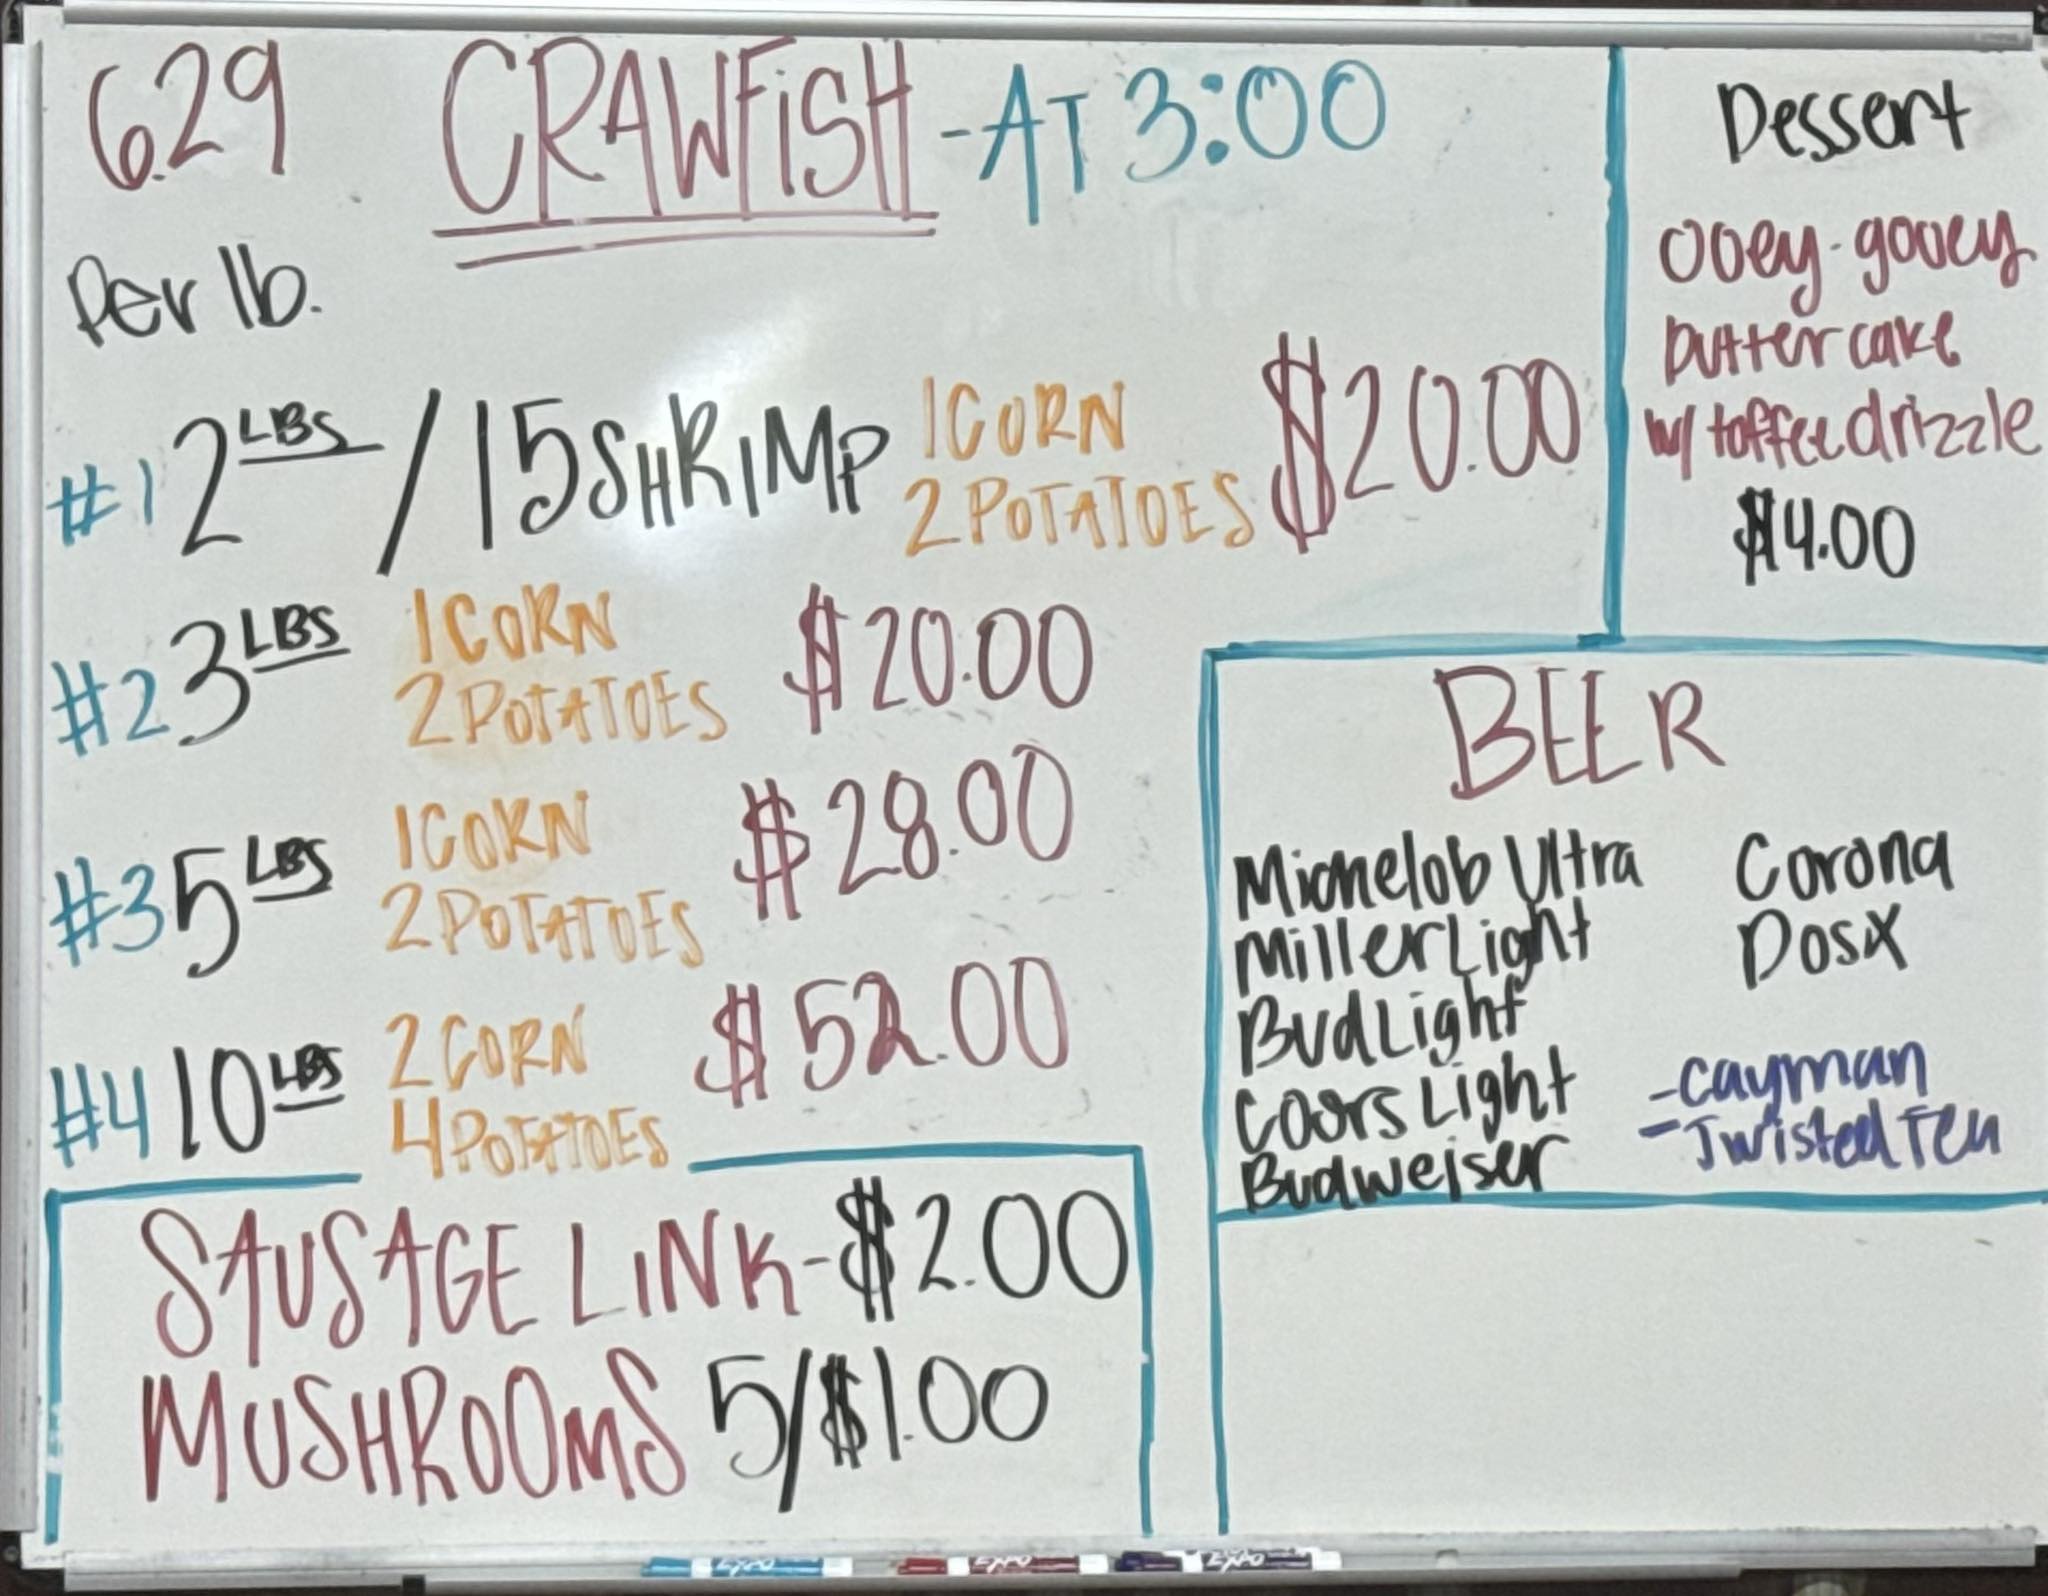 6.29 CRAWFiSH - AT 3:00
Per lb.
#1 2 LBS / 15 SHRIMP 1 CORN 2 POTATOES $20.00
#2 3 LBS 1 CORN 2 POTATOES $20.00
#3 5 LBS 1 CORN 2 POTATOES $28.00
#4 10 LBS 2 CORN 4 POTATOES $52.00
SAUSAGE LiNK - $2.00
MUSHROOMS 5/$1.00
Dessert
Ooey-gooey
butter cake
w/ toffee drizzle
$4.00
BEER
Michelob Ultra
Miller Light
Bud Light
Coors Light
Budweiser
Corona
Dos X
- Cayman
- Twisted Tea
EXPO
EXPO
EXPO